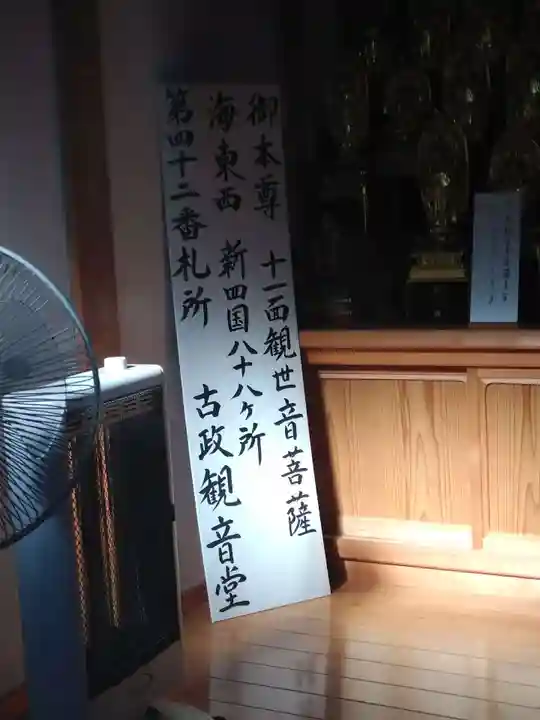 御本尊 十一面観世音菩薩
海東西 新四国八十八ヶ所
第四十二番札所 古政観音堂